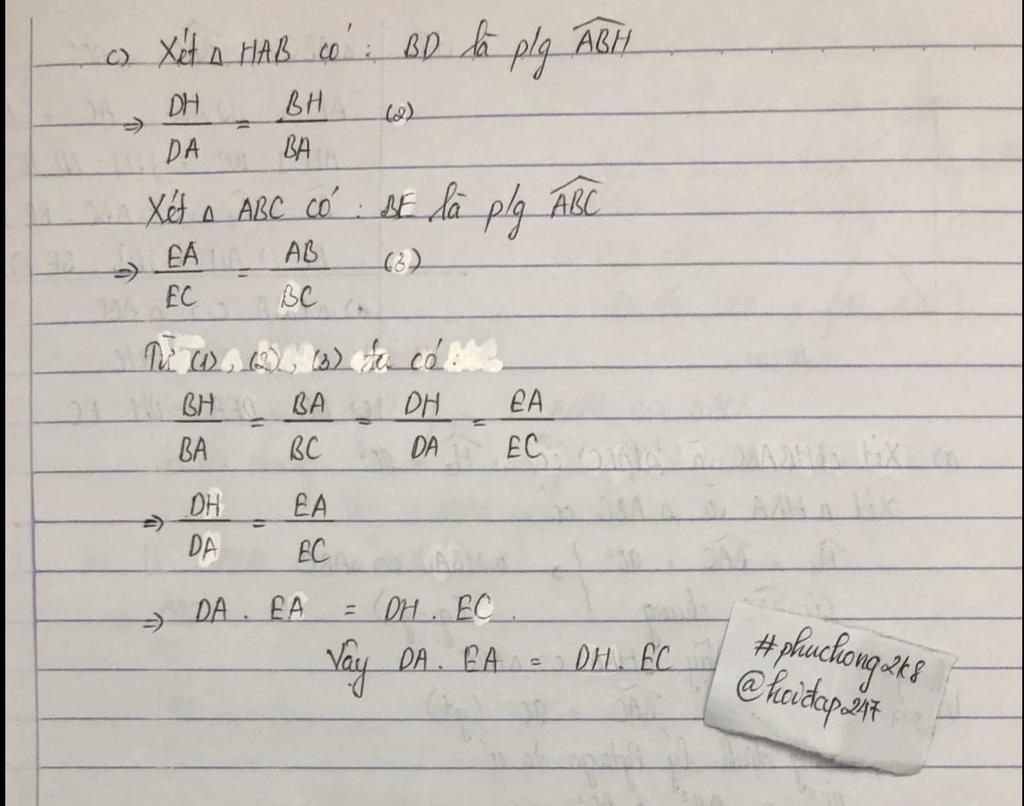 c) Xét Δ HAB có : BD là p/g \widehat{ABH}
⇒ DH/DA = BH/BA (2)
Xét Δ ABC có : BE là p/g \widehat{ABC}
⇒ EA/EC = AB/BC (3)
Từ (1), (2), (3) ta có :
BH/BA = BA/BC = DH/DA = EA/EC
⇒ DH/DA = EA/EC
⇒ DA . EA = DH . EC .
Vậy DA . EA = DH . EC
#phuchong2k8
@hoidap247